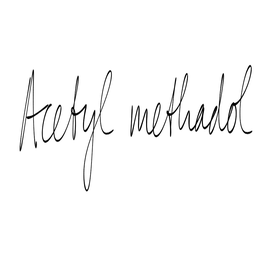 Acetyl methadol